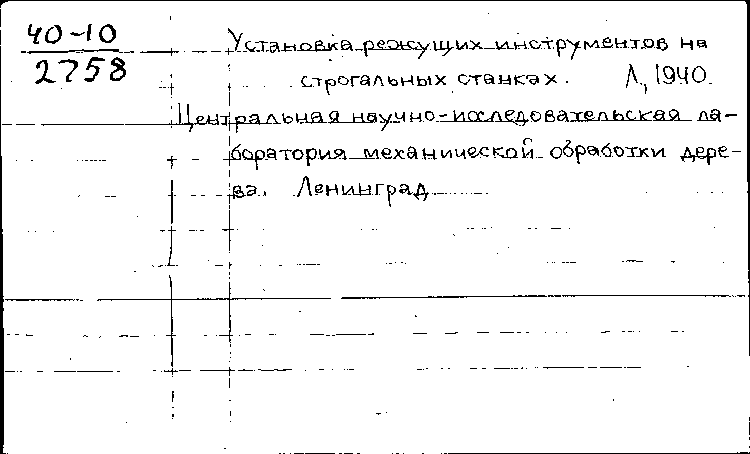 40-10
2758
Установка режущих инструментов на
строгальных станках. Л., 1940.
Центральная научно-исследовательская ла-
боратория механической обработки дере-
ва. Ленинград